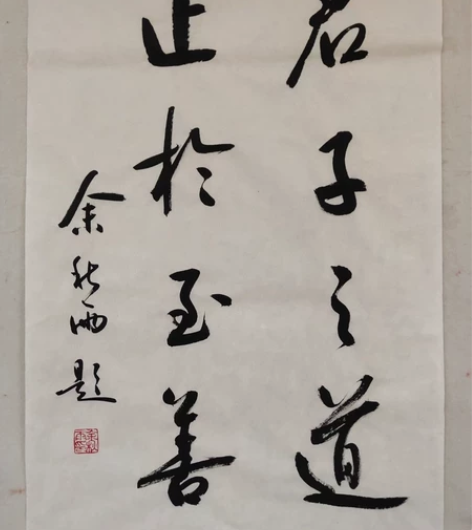 君子之道
止於至善
余秋雨題